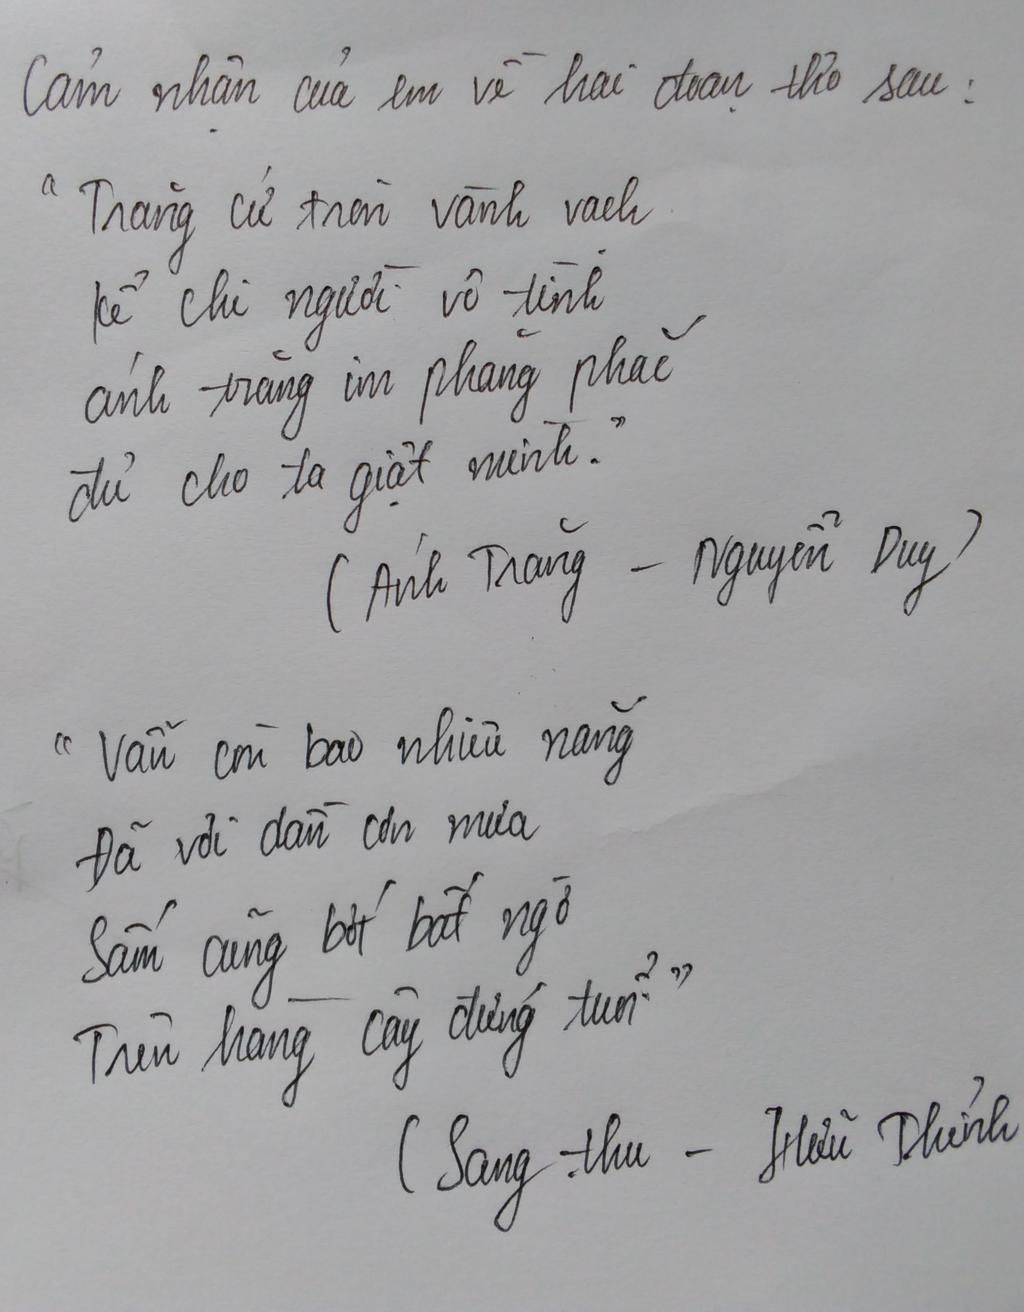 Cảm nhận của em về hai đoạn thơ sau:
"Trăng cứ tròn vành vạch
kể chi người vô tình
ánh trăng im phăng phắc
đủ cho ta giật mình."
(Ánh Trăng - Nguyễn Duy)
"Vẫn còn bao nhiêu nắng
Đã vơi dần cơn mưa
Sấm cũng bớt bất ngờ
Trên hàng cây đứng tuổi"
(Sang thu - Hữu Thỉnh